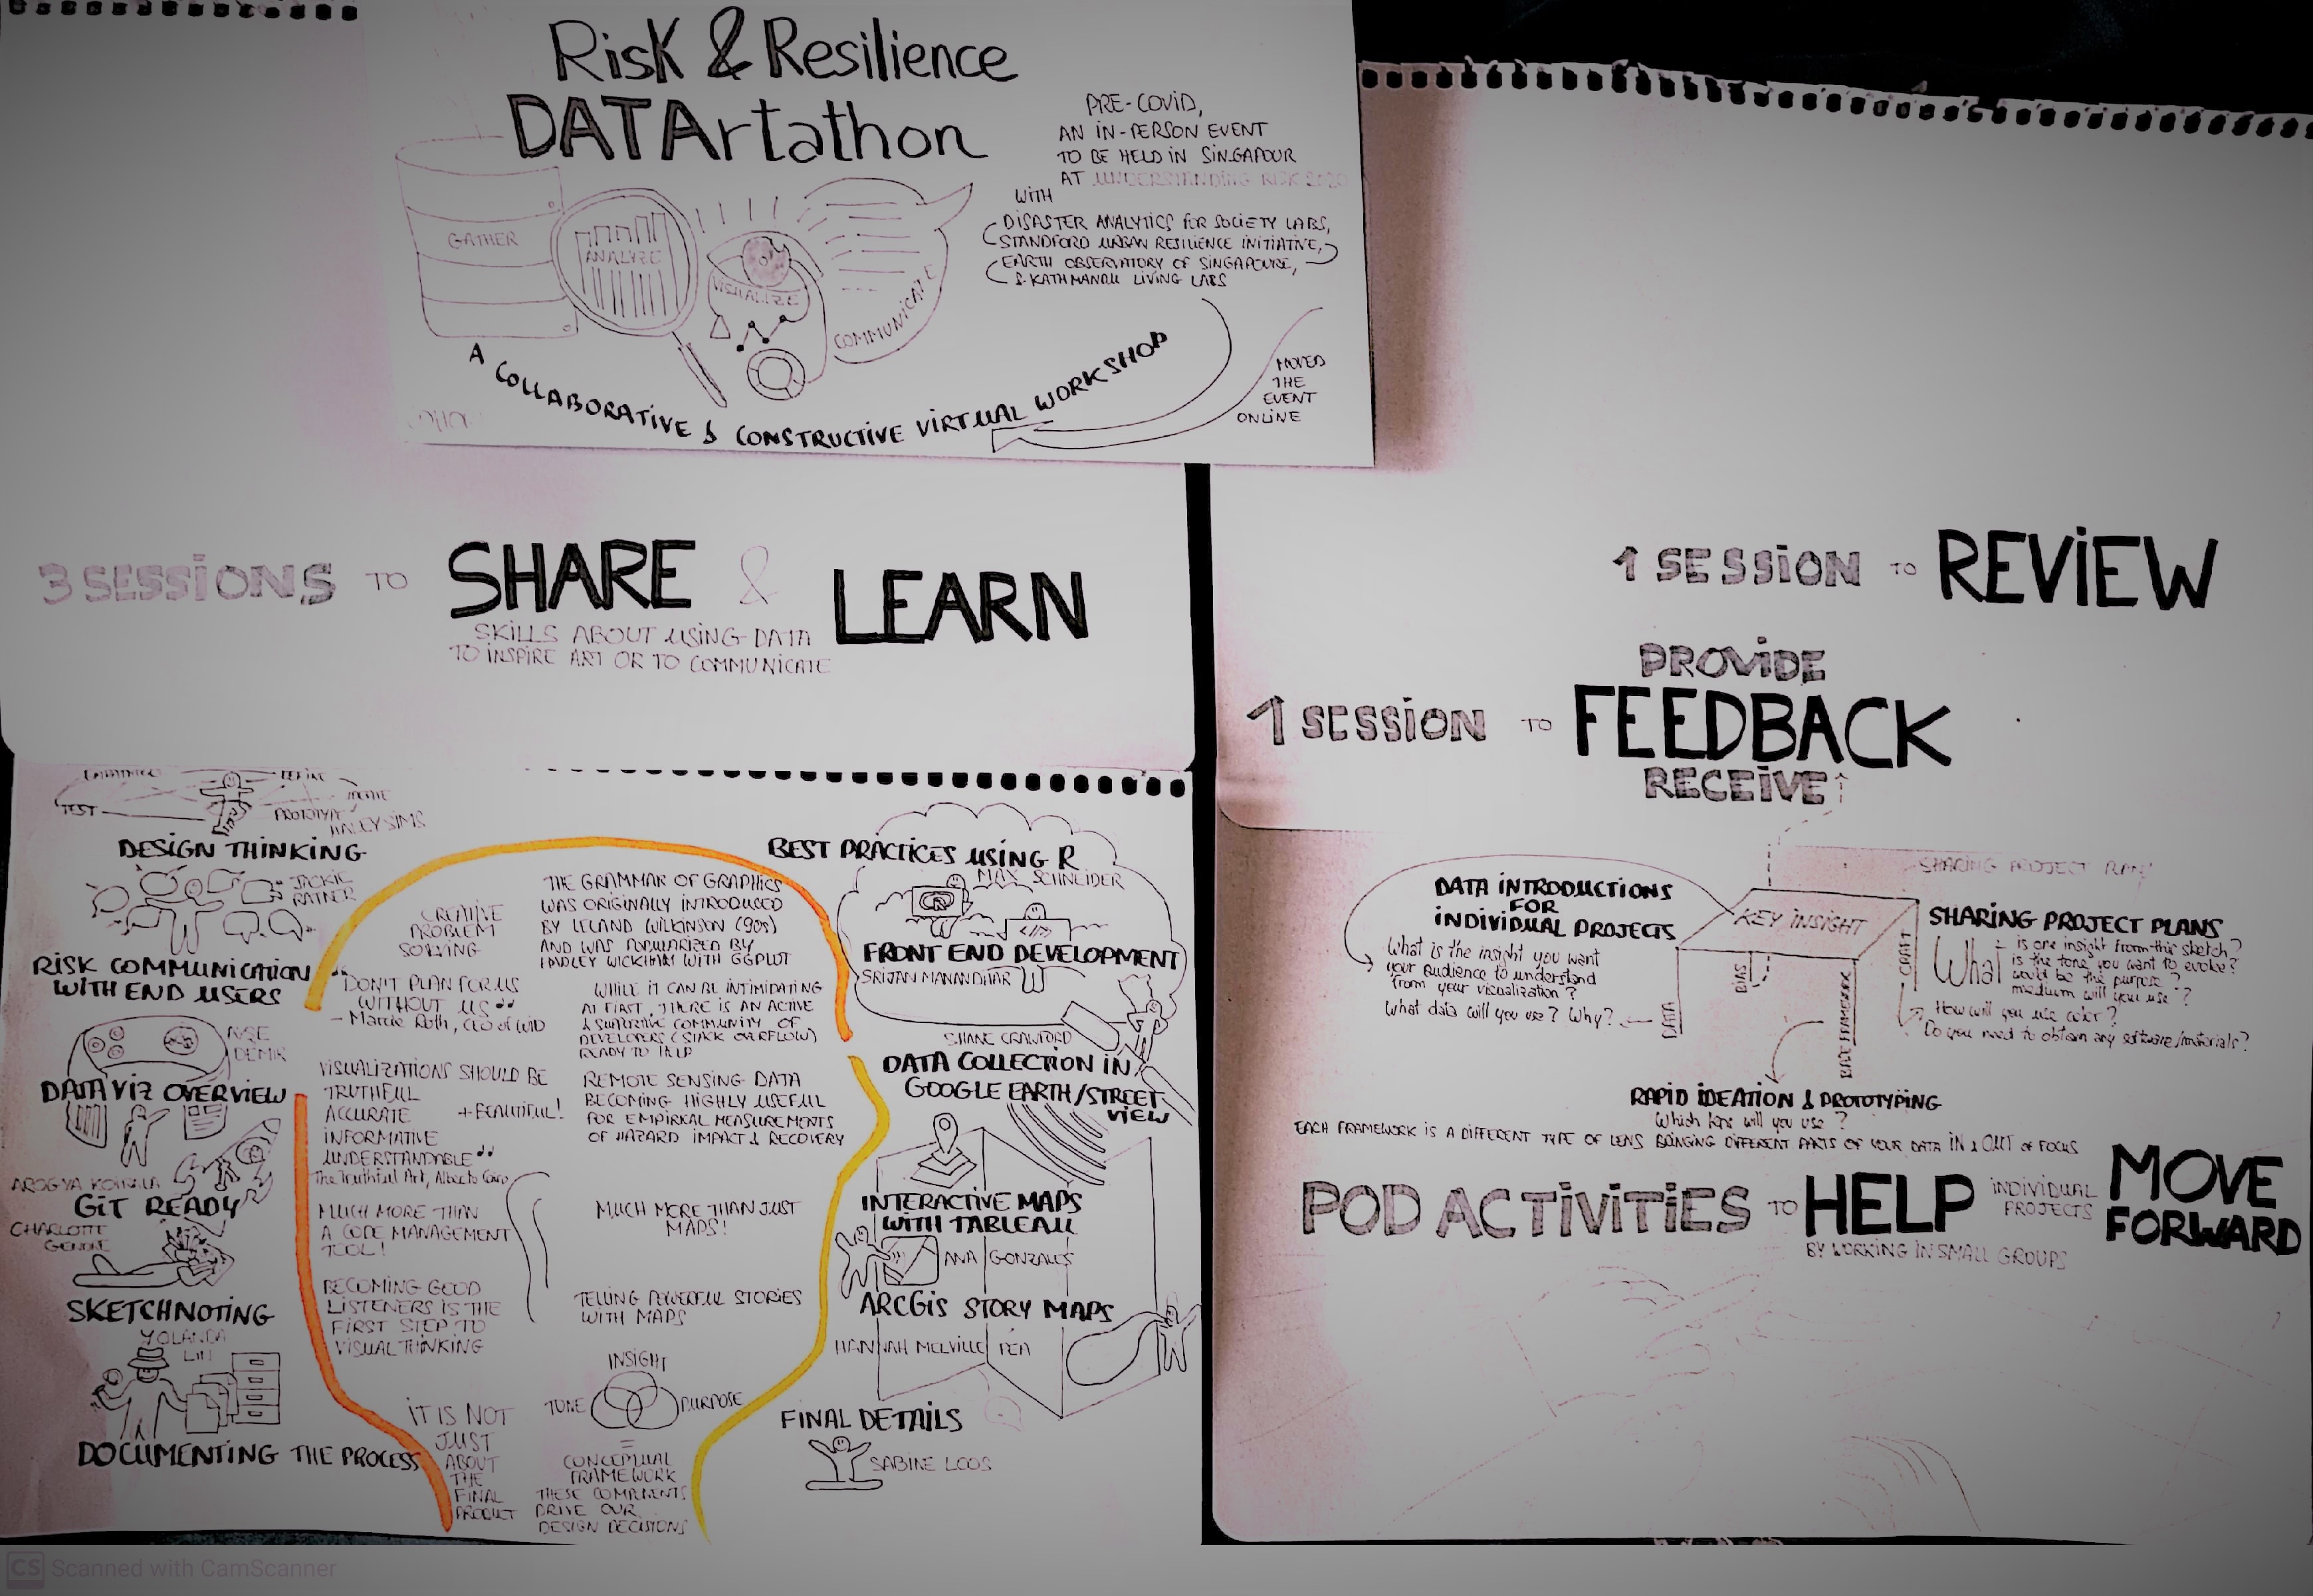 Risk & Resilience
DATArtathon
PRE-COVID,
AN IN-PERSON EVENT
TO BE HELD IN SINGAPOUR
AT UNDERSTANDING RISK 2020
WITH
DISASTER ANALYTICS FOR SOCIETY LABS,
STANDFORD URBAN RESILIENCE INITIATIVE,
EARTH OBSERVATORY OF SINGAPOURE,
& KATHMANDU LIVING LABS
GATHER
ANALYZE
VISUALIZE
COMMUNICATE
A COLLABORATIVE & CONSTRUCTIVE VIRTUAL WORKSHOP
MOVED
THE
EVENT
ONLINE
3 SESSIONS TO SHARE & LEARN
SKILLS ABOUT USING DATA
TO INSPIRE ART OR TO COMMUNICATE
TEST
PROTOTYPE
HALEY SIMS
DESIGN THINKING
JACKIE
RATNER
CREATIVE
PROBLEM
SOLVING
RISK COMMUNICATION
WITH END USERS
"DON'T PLAN FOR US
WITHOUT US"
- Marcie Roth, CEO of WID
AYSE
DEMIR
DATA VIZ OVERVIEW
VISUALIZATIONS SHOULD BE
TRUTHFUL
ACCURATE + BEAUTIFUL!
INFORMATIVE
UNDERSTANDABLE"
The Truthful Art, Alberto Cairo
AROGYA KOIRALA
GIT READY
MUCH MORE THAN
A CODE MANAGEMENT
TOOL!
CHARLOTTE
SKETCHNOTING
BECOMING GOOD
LISTENERS IS THE
FIRST STEP TO
VISUAL THINKING
YOLANDA
LIN
DOCUMENTING THE PROCESS
IT IS NOT
JUST
ABOUT
THE
FINAL
PRODUCT
BEST PRACTICES USING R
MAX SCHNEIDER
THE GRAMMAR OF GRAPHICS
WAS ORIGINALLY INTRODUCED
BY LELAND WILKINSON (90s)
AND WAS POPULARIZED BY
HADLEY WICKHAM WITH GGPLOT
FRONT END DEVELOPMENT
SRIJAN MANANDHAR
WHILE IT CAN BE INTIMIDATING
AT FIRST, THERE IS AN ACTIVE
& SUPPORTIVE COMMUNITY OF
DEVELOPERS (STACK OVERFLOW)
READY TO HELP
SHANE CRAWFORD
DATA COLLECTION IN
GOOGLE EARTH/STREET
VIEW
REMOTE SENSING DATA
BECOMING HIGHLY USEFUL
FOR EMPIRICAL MEASUREMENTS
OF HAZARD IMPACT & RECOVERY
INTERACTIVE MAPS
WITH TABLEAU
ANA GONZALES
MUCH MORE THAN JUST
MAPS!
ARCGIS STORY MAPS
HANNAH MELVILLE REA
TELLING POWERFUL STORIES
WITH MAPS
INSIGHT
TONE
PURPOSE
=
CONCEPTUAL
FRAMEWORK
THESE COMPONENTS
DRIVE OUR
DESIGN DECISIONS
FINAL DETAILS
SABINE LOOS
1 SESSION TO REVIEW
PROVIDE
1 SESSION TO FEEDBACK
RECEIVE
SHARING PROJECT PLAN
DATA INTRODUCTIONS
FOR
INDIVIDUAL PROJECTS
What is the insight you want
your audience to understand
from your visualization?
What data will you use? Why?
KEY INSIGHT
DATA
BIAS
CRAFT
SHARING PROJECT PLANS
What
is one insight from this sketch?
is the tone you want to evoke?
would be the purpose?
medium will you use?
How will you use color?
Do you need to obtain any software/materials?
RAPID IDEATION & PROTOTYPING
Which lens will you use?
EACH FRAMEWORK IS A DIFFERENT TYPE OF LENS BRINGING DIFFERENT PARTS OF YOUR DATA IN & OUT OF FOCUS
POD ACTIVITIES TO HELP INDIVIDUAL PROJECTS MOVE FORWARD
BY WORKING IN SMALL GROUPS
CS Scanned with CamScanner